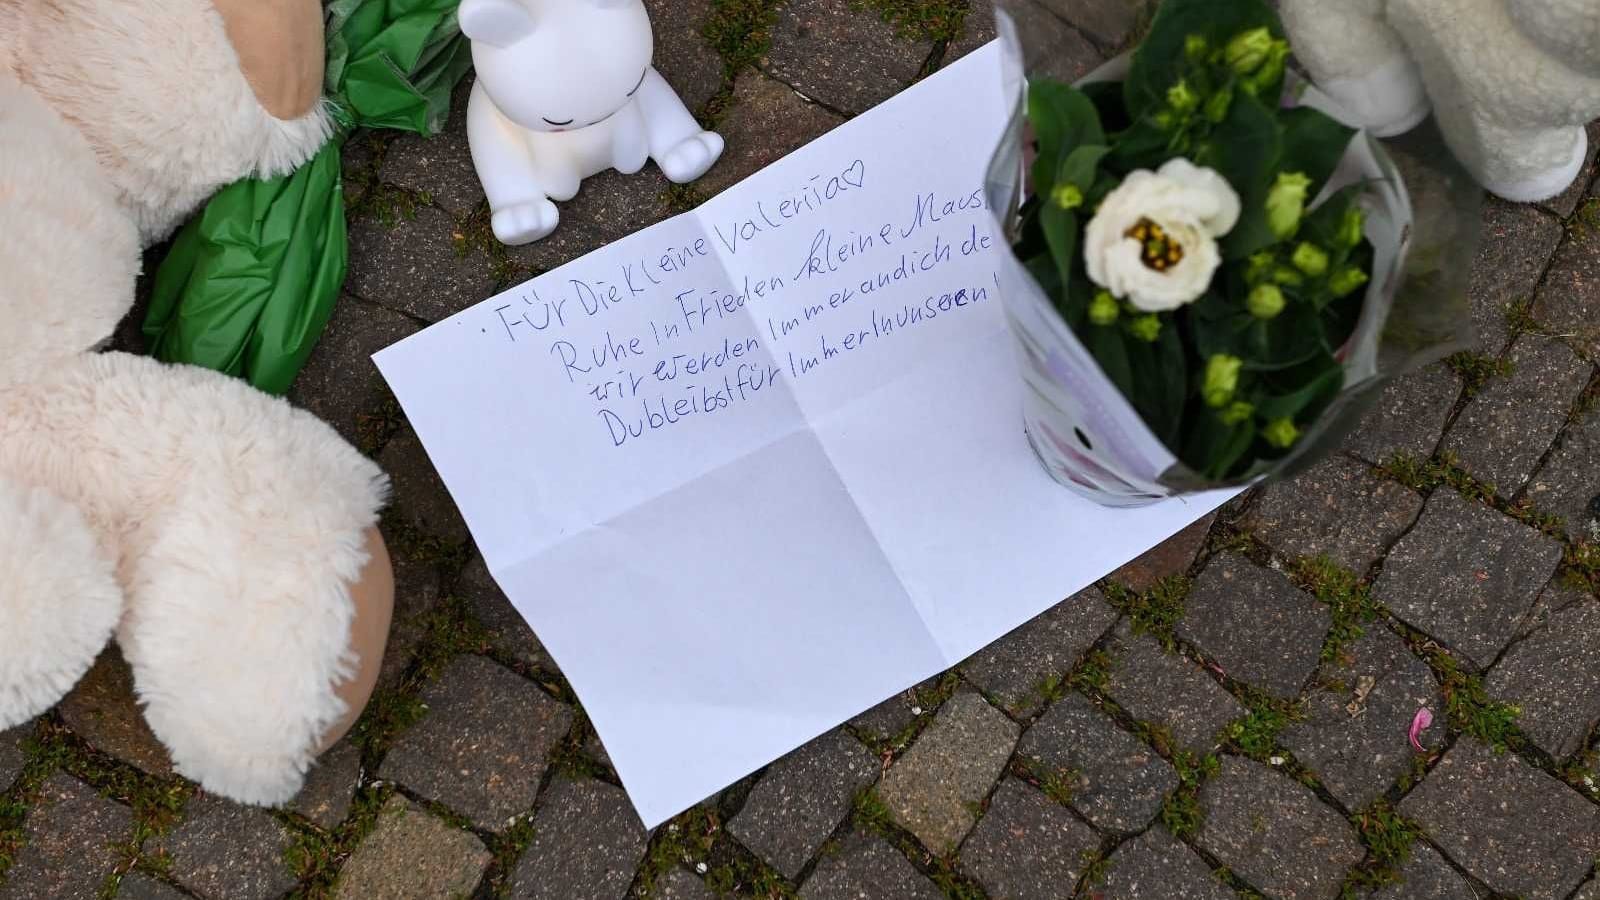 Für Die Kleine Valeriia♡
Ruhe In Frieden kleine Maus
wir werden Immer an dich de
Du bleibst für Immer In unseren